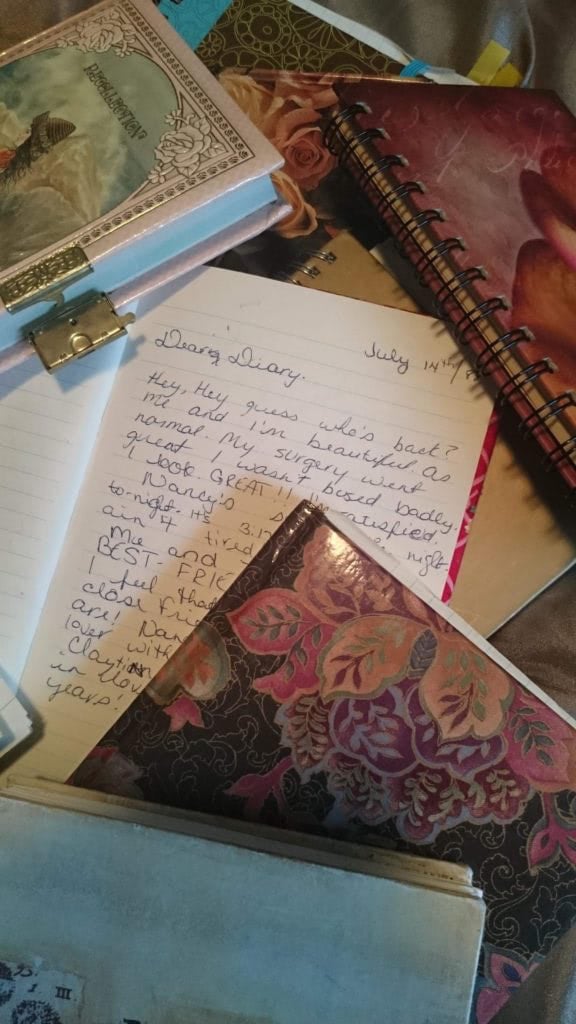 RECOLLECTION
Dear Diary.
July 14th/8
Hey, Hey guess who's back?
me and I'm beautiful as
normal. My surgery went
great I wasn't bused badly.
I look GREAT!! I'm satisfied.
Nancy's night
to-night. It's 3:1
ain't tired
Me and
BEST-FRIE
I feel tha
close frie
are! Nan
lover with
Clayton
in lov
years!
III